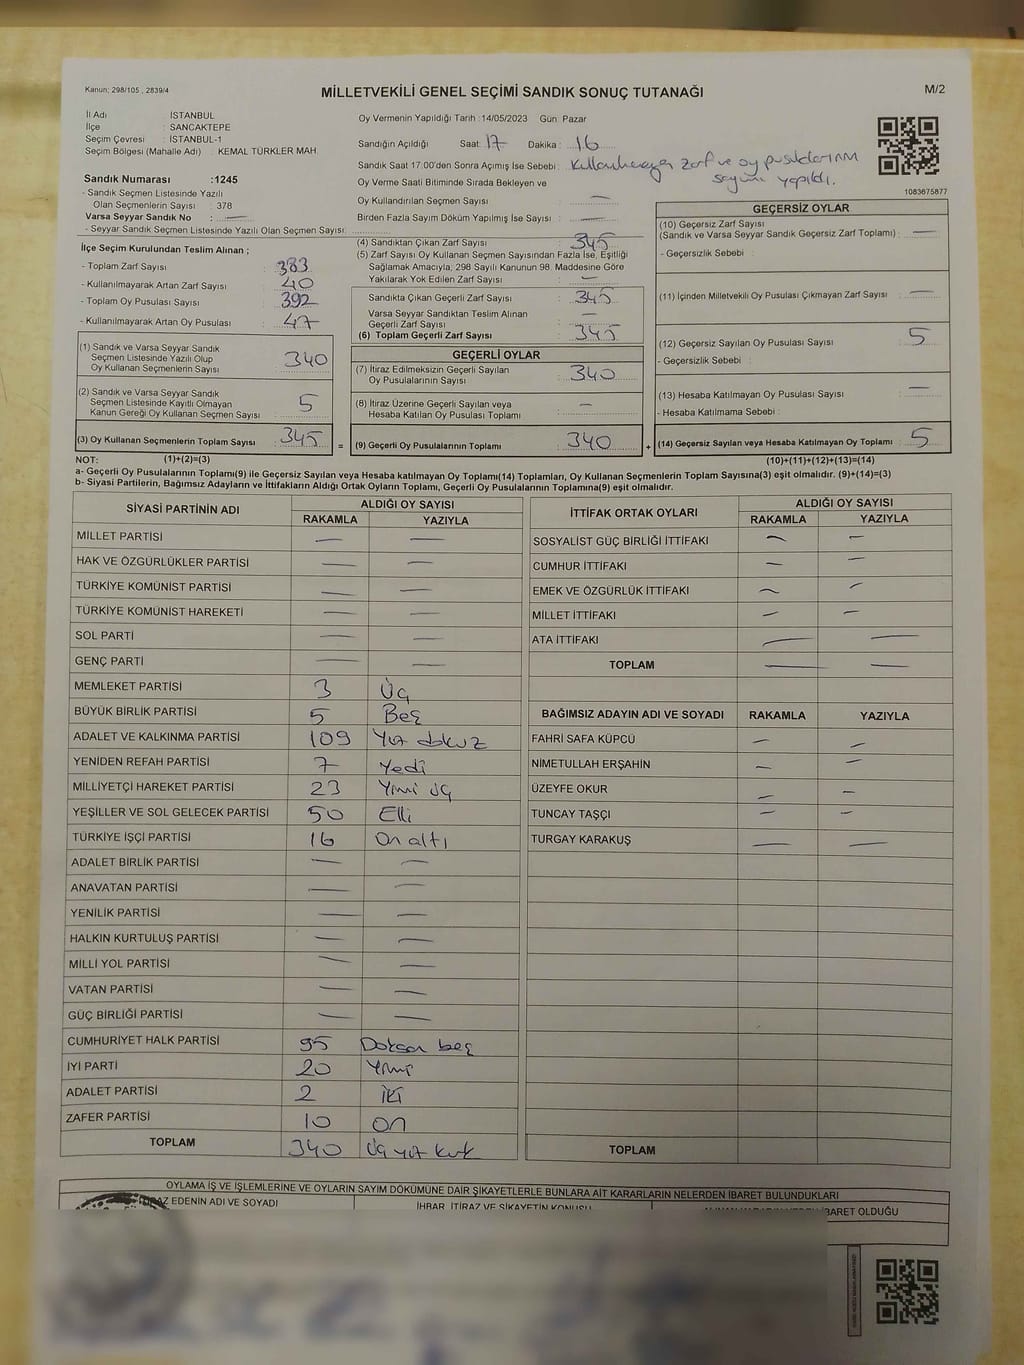 Kanun: 298/105 , 2839/4
MİLLETVEKİLİ GENEL SEÇİMİ SANDIK SONUÇ TUTANAĞI
M/2
İl Adı : İSTANBUL
İlçe : SANCAKTEPE
Seçim Çevresi : İSTANBUL-1
Seçim Bölgesi (Mahalle Adı) : KEMAL TÜRKLER MAH.
Sandık Numarası :1245
- Sandık Seçmen Listesinde Yazılı
Olan Seçmenlerin Sayısı : 378
Varsa Seyyar Sandık No : —
- Seyyar Sandık Seçmen Listesinde Yazılı Olan Seçmen Sayısı:
Oy Vermenin Yapıldığı Tarih :14/05/2023 Gün: Pazar
Sandığın Açıldığı Saat: 17 Dakika : 16
Sandık Saat 17.00'den Sonra Açımış İse Sebebi : Kullanılmayan zarf ve oy pusulalarının
sayımı yapıldı.
Oy Verme Saati Bitiminde Sırada Bekleyen ve
Oy Kullandırılan Seçmen Sayısı : —
Birden Fazla Sayım Döküm Yapılmış İse Sayısı : —
1083675877
İlçe Seçim Kurulundan Teslim Alınan ;
- Toplam Zarf Sayısı : 383
- Kullanılmayarak Artan Zarf Sayısı : 40
- Toplam Oy Pusulası Sayısı : 392
- Kullanılmayarak Artan Oy Pusulası : 47
(1) Sandık ve Varsa Seyyar Sandık
Seçmen Listesinde Yazılı Olup
Oy Kullanan Seçmenlerin Sayısı : 340
(2) Sandık ve Varsa Seyyar Sandık
Seçmen Listesinde Kayıtlı Olmayan
Kanun Gereği Oy Kullanan Seçmen Sayısı : 5
(3) Oy Kullanan Seçmenlerin Toplam Sayısı : 345
(4) Sandıktan Çıkan Zarf Sayısı : 345
(5) Zarf Sayısı Oy Kullanan Seçmen Sayısından Fazla İse, Eşitliği
Sağlamak Amacıyla; 298 Sayılı Kanunun 98. Maddesine Göre
Yakılarak Yok Edilen Zarf Sayısı : —
Sandıkta Çıkan Geçerli Zarf Sayısı : 345
Varsa Seyyar Sandıktan Teslim Alınan
Geçerli Zarf Sayısı : —
(6) Toplam Geçerli Zarf Sayısı : 345
GEÇERLİ OYLAR
(7) İtiraz Edilmeksizin Geçerli Sayılan
Oy Pusulalarının Sayısı : 340
(8) İtiraz Üzerine Geçerli Sayılan veya
Hesaba Katılan Oy Pusulası Toplamı : —
= (9) Geçerli Oy Pusulalarının Toplamı : 340
GEÇERSİZ OYLAR
(10) Geçersiz Zarf Sayısı
(Sandık ve Varsa Seyyar Sandık Geçersiz Zarf Toplamı) : —
- Geçersizlik Sebebi :
(11) İçinden Milletvekili Oy Pusulası Çıkmayan Zarf Sayısı : —
(12) Geçersiz Sayılan Oy Pusulası Sayısı : 5
- Geçersizlik Sebebi :
(13) Hesaba Katılmayan Oy Pusulası Sayısı : —
- Hesaba Katılmama Sebebi :
+ (14) Geçersiz Sayılan veya Hesaba Katılmayan Oy Toplamı : 5
NOT: (1)+(2)=(3)
(10)+(11)+(12)+(13)=(14)
a- Geçerli Oy Pusulalarının Toplamı(9) ile Geçersiz Sayılan veya Hesaba katılmayan Oy Toplamı(14) Toplamları, Oy Kullanan Seçmenlerin Toplam Sayısına(3) eşit olmalıdır. (9)+(14)=(3)
b- Siyasi Partilerin, Bağımsız Adayların ve İttifakların Aldığı Ortak Oyların Toplamı, Geçerli Oy Pusulalarının Toplamına(9) eşit olmalıdır.
SİYASİ PARTİNİN ADI
ALDIĞI OY SAYISI
RAKAMLA YAZIYLA
MİLLET PARTİSİ — —
HAK VE ÖZGÜRLÜKLER PARTİSİ — —
TÜRKİYE KOMÜNİST PARTİSİ — —
TÜRKİYE KOMÜNİST HAREKETİ — —
SOL PARTİ — —
GENÇ PARTİ — —
MEMLEKET PARTİSİ 3 Üç
BÜYÜK BİRLİK PARTİSİ 5 Beş
ADALET VE KALKINMA PARTİSİ 109 Yüz dokuz
YENİDEN REFAH PARTİSİ 7 Yedi
MİLLİYETÇİ HAREKET PARTİSİ 23 Yirmi üç
YEŞİLLER VE SOL GELECEK PARTİSİ 50 Elli
TÜRKİYE İŞÇİ PARTİSİ 16 On altı
ADALET BİRLİK PARTİSİ — —
ANAVATAN PARTİSİ — —
YENİLİK PARTİSİ — —
HALKIN KURTULUŞ PARTİSİ — —
MİLLİ YOL PARTİSİ — —
VATAN PARTİSİ — —
GÜÇ BİRLİĞİ PARTİSİ — —
CUMHURİYET HALK PARTİSİ 95 Doksan beş
İYİ PARTİ 20 Yirmi
ADALET PARTİSİ 2 İki
ZAFER PARTİSİ 10 On
TOPLAM 340 Üç yüz kırk
İTTİFAK ORTAK OYLARI
ALDIĞI OY SAYISI
RAKAMLA YAZIYLA
SOSYALİST GÜÇ BİRLİĞİ İTTİFAKI — —
CUMHUR İTTİFAKI — —
EMEK VE ÖZGÜRLÜK İTTİFAKI — —
MİLLET İTTİFAKI — —
ATA İTTİFAKI — —
TOPLAM — —
BAĞIMSIZ ADAYIN ADI VE SOYADI RAKAMLA YAZIYLA
FAHRİ SAFA KÜPCÜ — —
NİMETULLAH ERŞAHİN — —
ÜZEYFE OKUR — —
TUNCAY TAŞÇI — —
TURGAY KARAKUŞ — —
TOPLAM
OYLAMA İŞ VE İŞLEMLERİNE VE OYLARIN SAYIM DÖKÜMÜNE DAİR ŞİKAYETLERLE BUNLARA AİT KARARLARIN NELERDEN İBARET BULUNDUKLARI
İTİRAZ EDENİN ADI VE SOYADI
İHBAR, İTİRAZ VE ŞİKAYETİN KONUSU
İBARET OLDUĞU